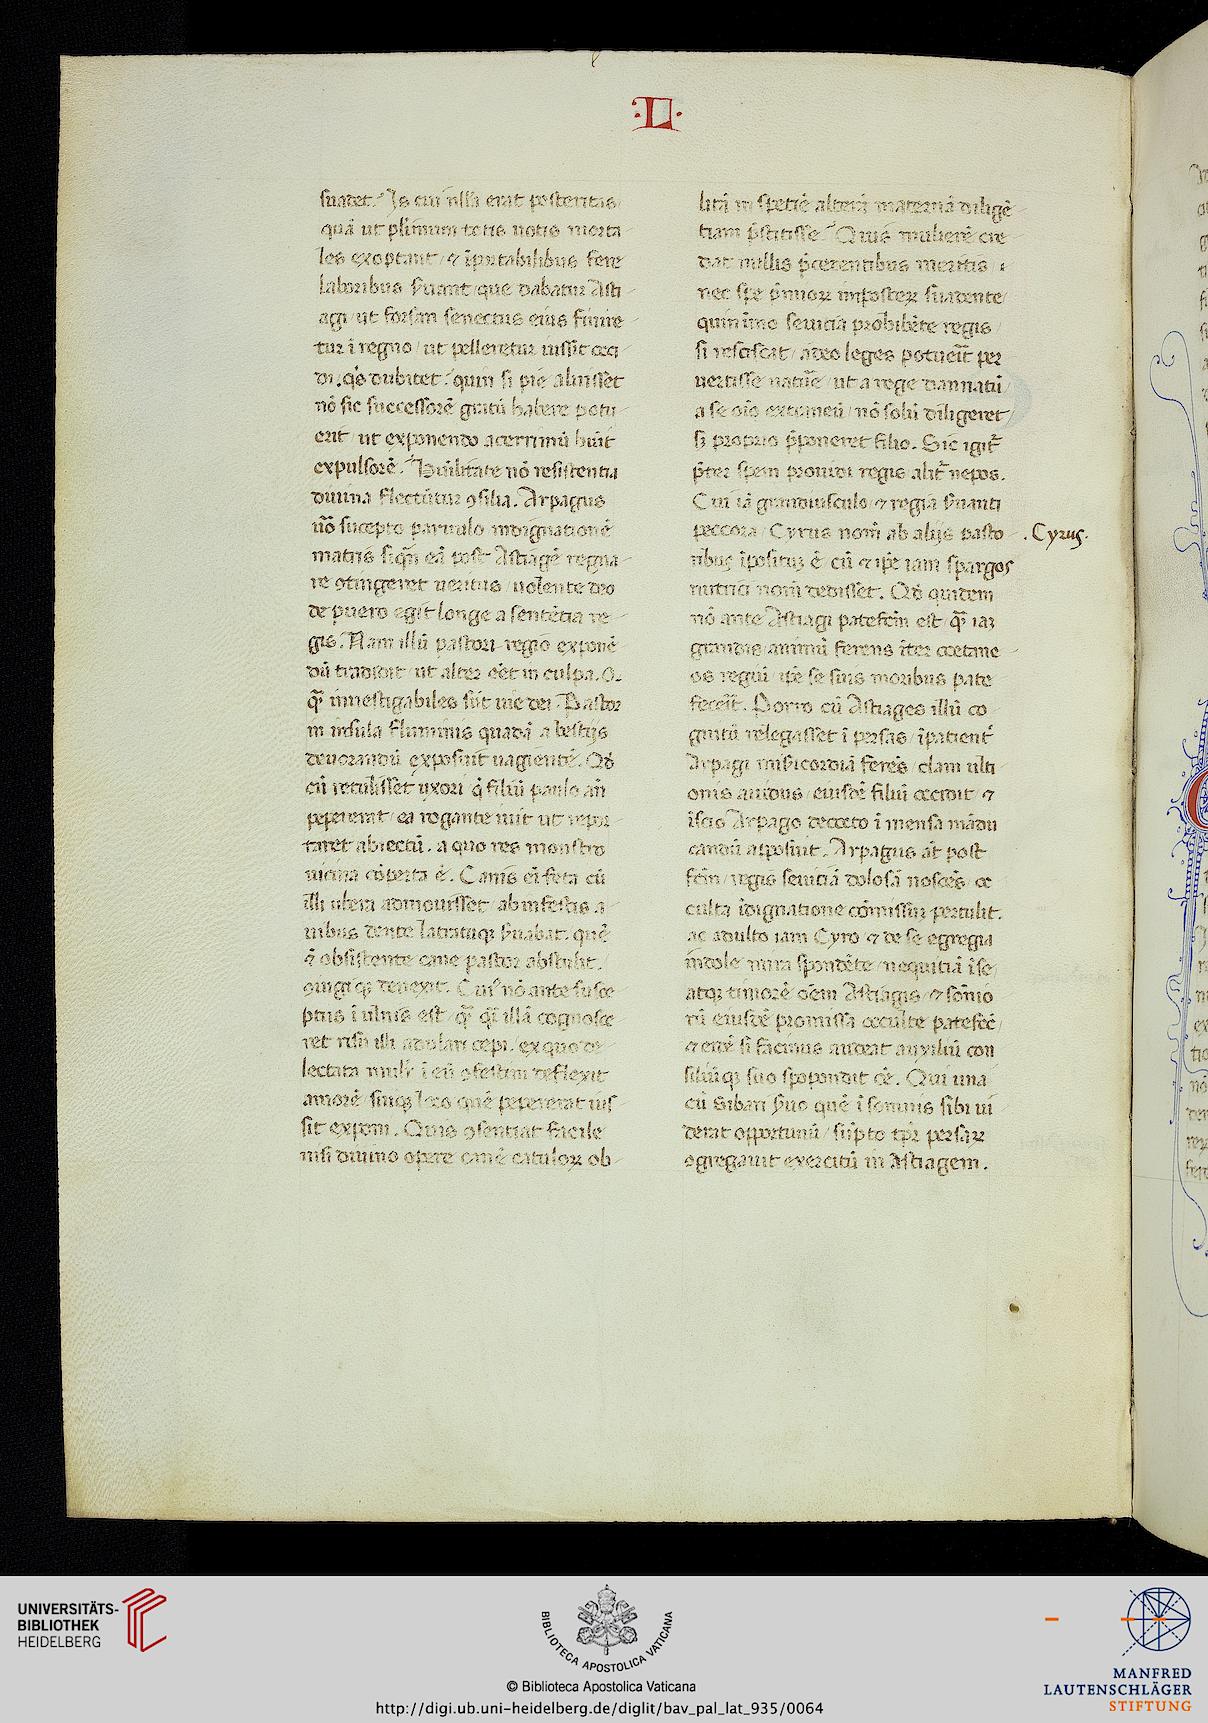 :L·
suadet. Is cui nulla erat posteritas
quā ut plīmum totis votis morta
les exoptant / ⁊ īputabilibus fere
laboribus ẜuant / que dabatur Asti
agi / ut forsan senectus eius finire
tur ī regno / ut pelleretur iussit occi
di. qs dubitet quin si pie aluisset
nō sic successorē gratū habere potu
erit / ut exponendo acerrimū huit
expulsorē. Huīlitate nō resistentia
divina flectūtur ꝯsilia. Arpagus
uo sucepto paruulo indignationē
matris siqn̄ eā post Astiagē regna
re ꝯtingeret veritus / volente deo
de puero egit longe a sentētia re
gis. Nam illū pastori regio exponē
dū tradidit / ut alter eēt in culpa. O
qm̄ investigabiles sūt vie dei. Pastor
in insula fluminis quadā a bestijs
devorandū exposuit vagientē. Qd
cū retulisset uxori q̄ filiū paulo an̄
pepererat / ea rogante ivit ut repor
taret abiectū. a quo res monstro
vicina cōperta ē. Canis eī feta cū
illi ubera admovisset / ab infestis a
vibus dente latratuqꝫ ẜuabat. quē
⁊ obsistente cane pastor abstulit.
ꝯiugi qꝫ devexit. Cuiꝰ nō ante susce
ptus ī ulnis est / qm̄ qī illā cognosce
ret risu illi adulari cepi. ex quo de
lectata mulr̄ ī eū ꝯfestim deflexit
amorē / suuqꝫ loco quē pepererat ius
sit exponi. Quis ꝯsentiat facile
nisi divino opere canē catuloꝝ ob
litā in spetiē alterā maternā diligē
tiam p̄stitisse. Quis mulierē cre
dat nullis p̄cedentibus meritis /
nec spe p̄mioꝝ imposteꝝ suadente /
quinimo sevicia prohibēte regis /
si resciscat / adeo leges potueīt per
vertisse nature / ut a rege damnatū
a se oīo extraneū / nō solū diligeret /
sꝫ proprio p̄poneret filio. Sic igit̄
p̄ter spem providi regis alit̄ nepos.
Cui iā grandiusculo / ⁊ regia ẜuanti
peccora / Cyrus nom̄ ab alijs pasto
ribus īpositū ē / cū ⁊ ip̄e iam spargos
nutrici nom̄ dedisset. Qd quidem
nō ante Astiagi patefcm̄ est / qm̄ iaꝫ
grandis / animū ferens iter coetane
os regiū / ip̄e se suis moribus pate
fecett. Porro cū Astiages illū co
gnitū relegasset ī persas / īpatient̄
Arpagi misicordiā ferēs / clam ulti
onis avidus / eiusdē filiū occidit / ⁊
īscio Arpago decocto ī mensa mādu
candū apposuit. Arpagus at post
fcm̄ / regis seviciā dolosā noscēs / oc
culta īdignatione cōmissuꝫ pertulit.
ac adulto iam Cyro ⁊ de se egregia
indole mira spondēte / nequitiā ī se /
atqꝫ timorē oēm Astiagis / ⁊ sōnio
rū eiusdē promissa occulte patefec̄ /
⁊ etiē si facinus audeat auxiliū con
siliūqꝫ suo spopondit ēē. Qui una
cū Sibari ẜuo quē ī somnis sibi vi
derat opportunū / sūpto tpr̄ persaꝝ
ꝯgregavit exercitū in Astiagem.
. Cyrus.
UNIVERSITÄTS-
BIBLIOTHEK
HEIDELBERG
BIBLIOTECA APOSTOLICA VATICANA
© Biblioteca Apostolica Vaticana
http://digi.ub.uni-heidelberg.de/diglit/bav_pal_lat_935/0064
MANFRED
LAUTENSCHLÄGER
STIFTUNG